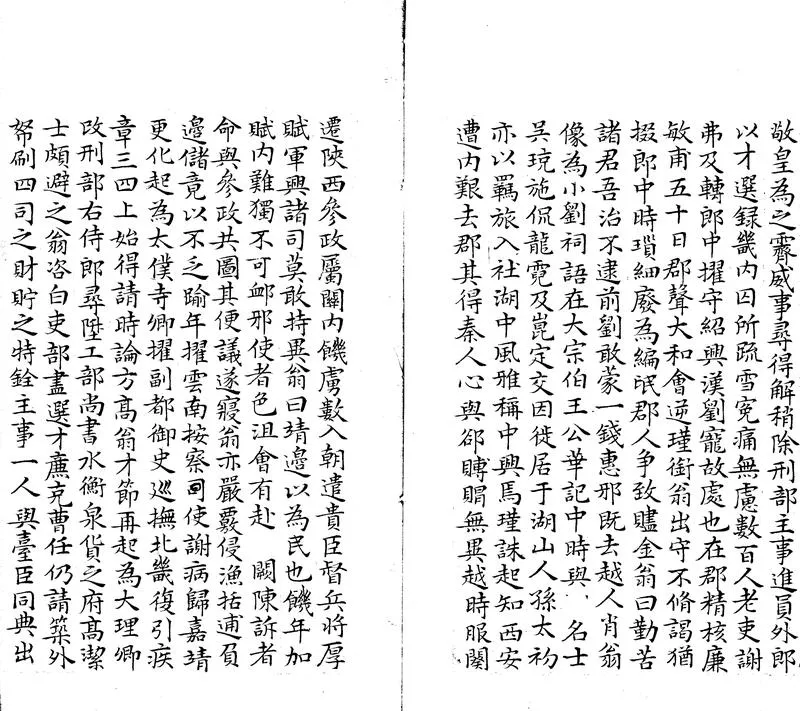 敬皇為之霽威事尋得解稍除刑部主事進員外郎
以才選録畿内囚所疏雪冤痛無慮數百人老吏謝
弗及轉郎中擢守紹興漢劉寵故處也在郡精核廉
敏甫五十日郡聲大和會逆瑾銜翁出守不脩謁猶
掇郎中時瑣細廢為編氓郡人争致贐金翁曰勤苦
諸君吾治不逮前劉敢蒙一錢惠邪既去越人肖翁
像為小劉祠語在大宗伯王公華記中時與 名士
吴珫施侃龍霓及崑定交因徙居于湖山人孫太初
亦以羈旅入社湖中風雅稱中興焉瑾誅起知西安
遭内艱去郡其得秦人心與郤賻賵無異越時服闋
遷陝西參政屬關内饑虜數入朝遣貴臣督兵將厚
賦軍興諸司莫敢持異翁曰靖邊以為民也饑年加
賦内難獨不可邺邪使者色沮會有赴 闕陳訴者
命與參政共圖其便議遂寢翁亦嚴覈侵漁括逋負
邊儲竟以不乏踰年擢雲南按察司使謝病歸嘉靖
更化起為太僕寺卿擢副都御史巡撫北畿復引疾
章三四上始得請時論方髙翁才節再起為大理卿
改刑部右侍郎尋陞工部尚書水衡泉貨之府髙潔
士頗避之翁咨白吏部盡選才廉充曹任仍請築外
帑刷四司之財貯之特銓主事一人與臺臣同典出